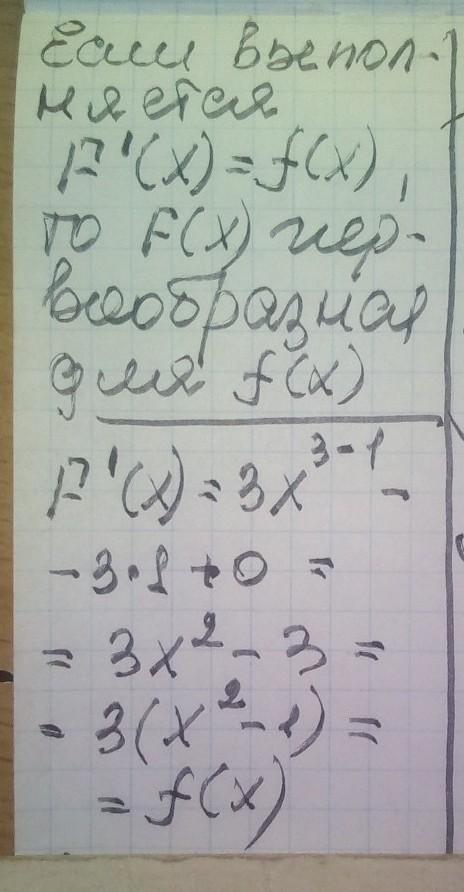 Если выпол-
няется
F'(x) = f(x),
то F(x) пер-
вообразная
для f(x)
F'(x) = 3x³⁻¹ -
- 3·1 + 0 =
= 3x² - 3 =
= 3(x² - 1) =
= f(x)